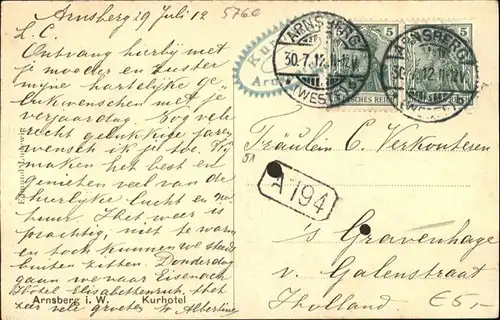 Arnsberg 29 Juli 12
5760
L. C.
Ontvang hierbij met
je moeder en zuster
mijne hartelijke ge-
lukwenschen met je
verjaardag. Nog vele
recht gelukkige jaren
wensch ik je toe. Wij
maken het best en
genieten veel van de
heerlijke lucht en na-
tuur. Het weer is
prachtig, niet te warm
en toch kunnen we steeds
buiten zitten. Donderdag
gaan we naar Eisenach
Hôtel Elisabethenruh, met
zeer vele groeten Albertine
Arnsberg i. W. Kurhotel
ARNSBERG
30.7.12.11-12V
(WESTF.)
ARNSBERG
30.7.12.11-12V
(WESTF.)
5
5
DEUTSCHES REICH
A 194
Fräulein C. Verkouteren
's Gravenhage
v. Galenstraat
Holland
€5,-